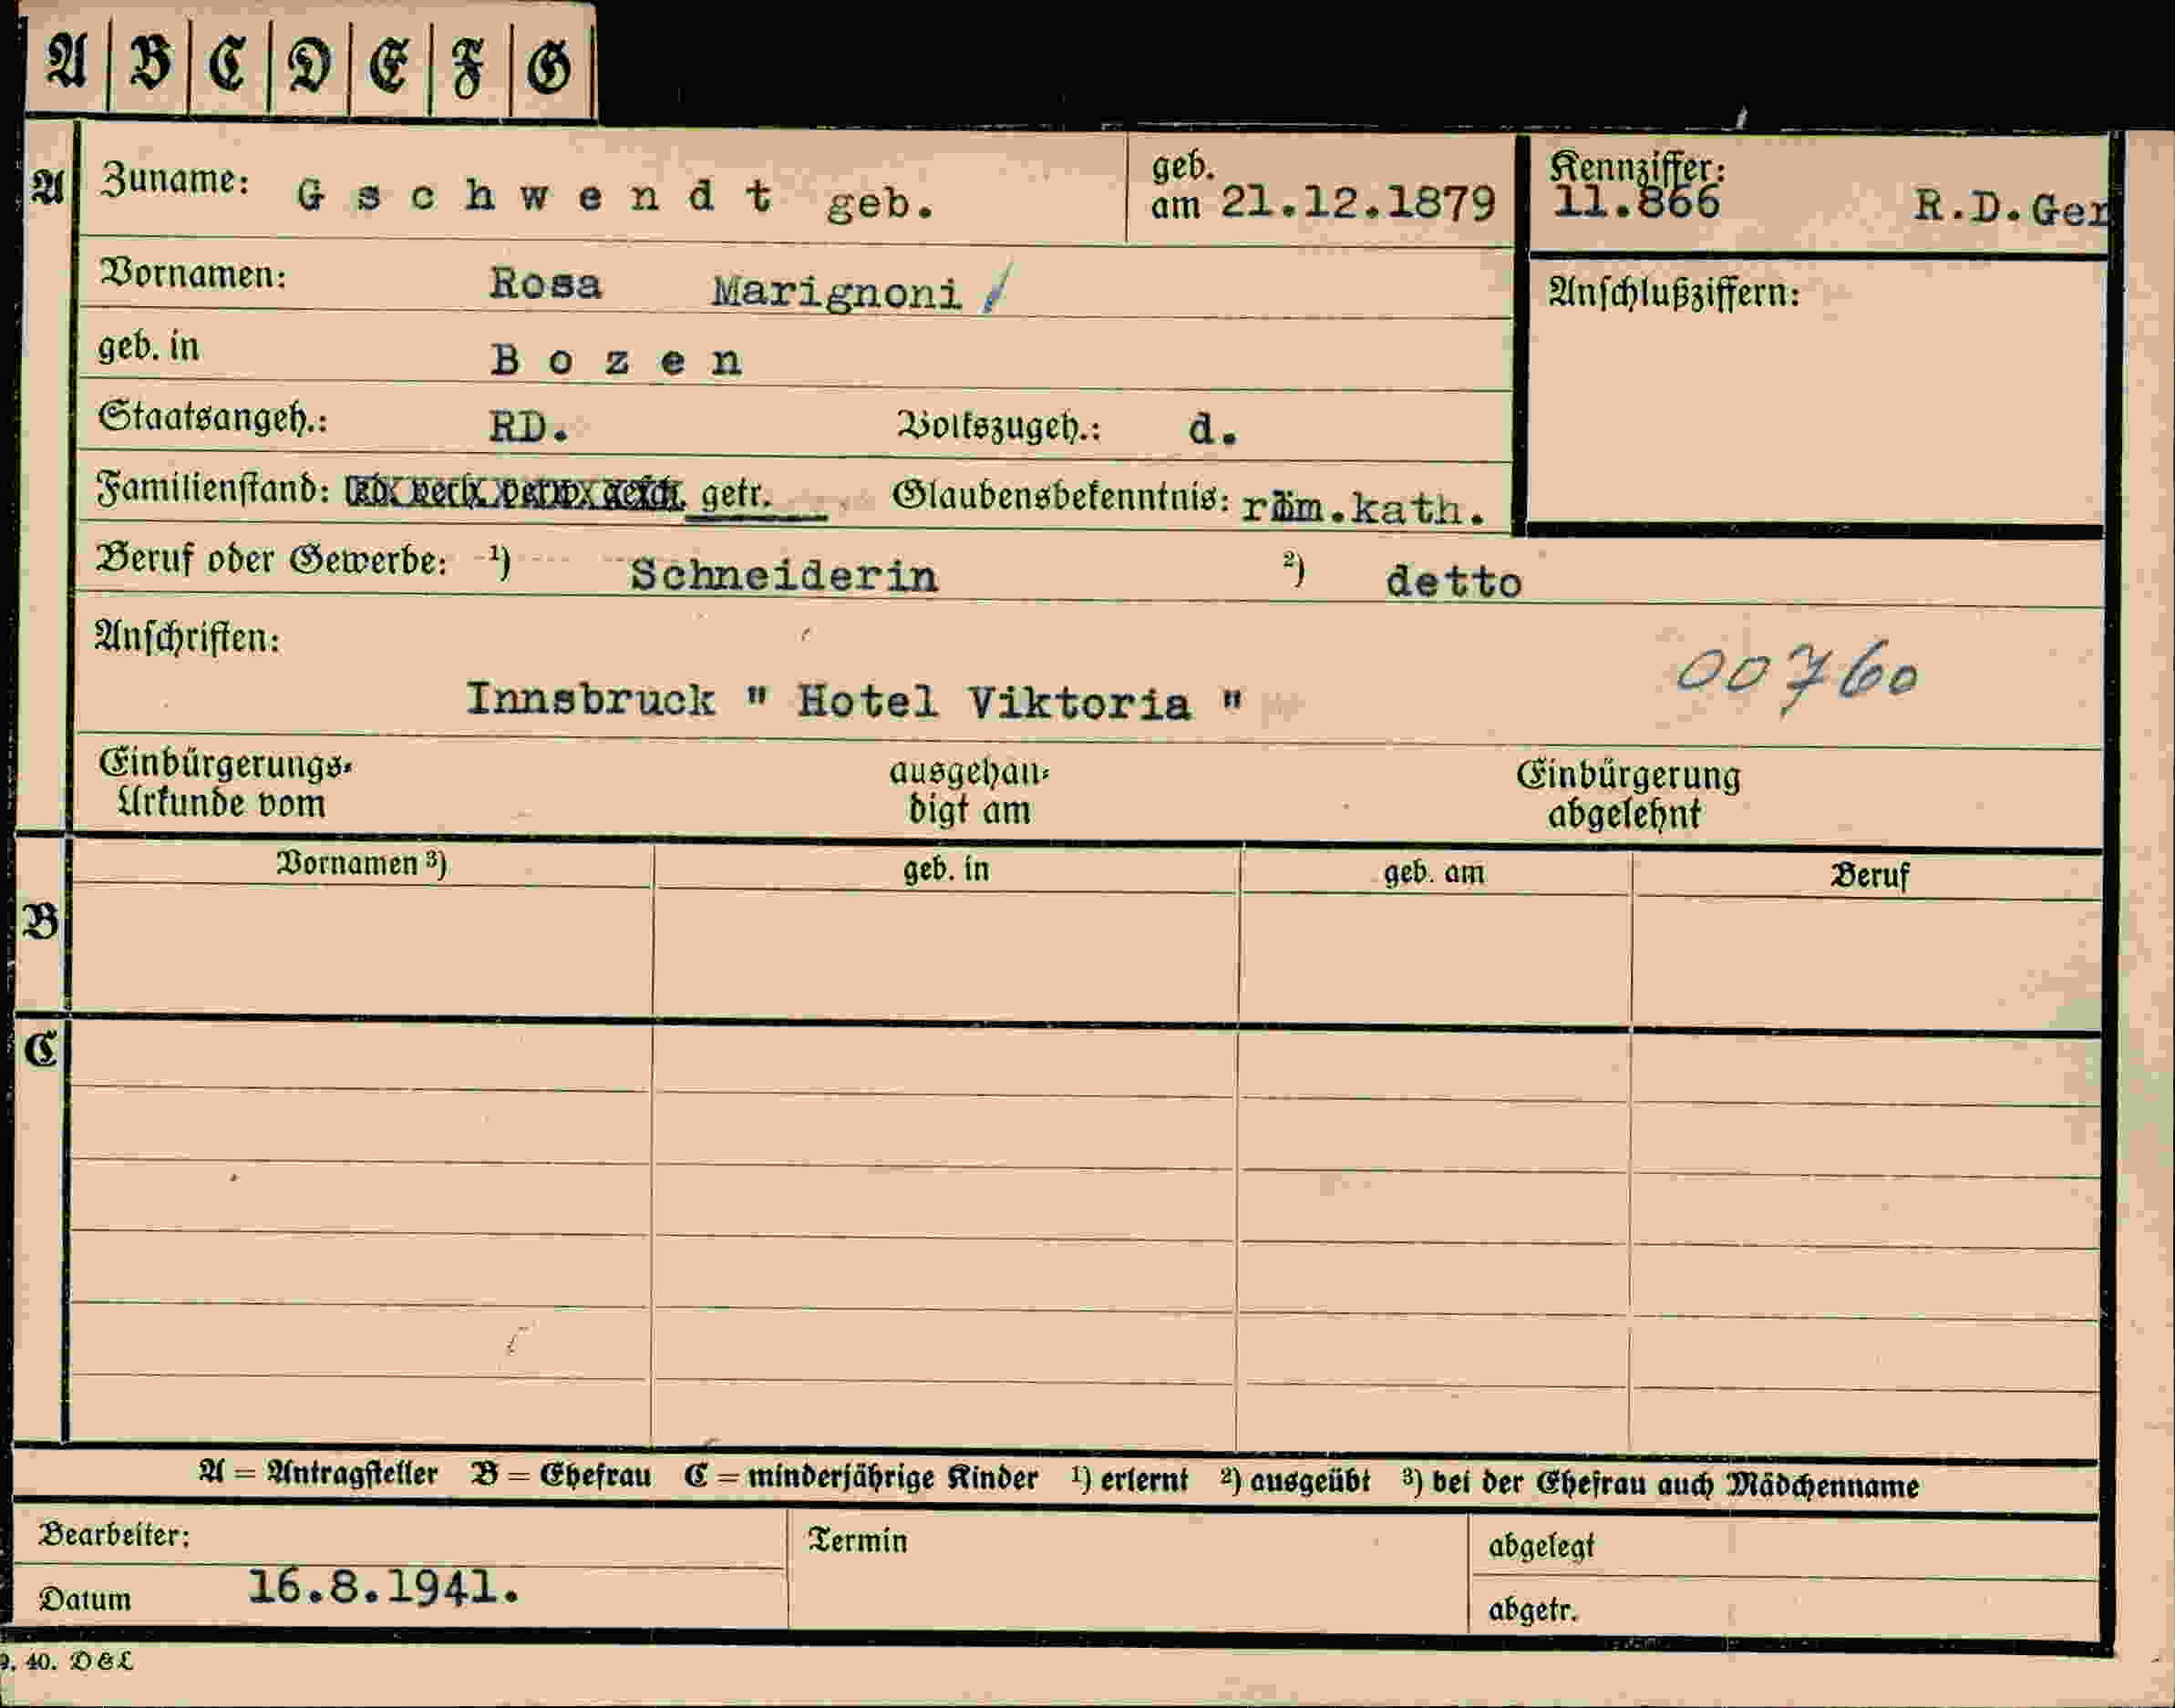 A B C D E F G
A Zuname: Gschwendt geb. geb. am 21.12.1879 Kennziffer: 11.866 R.D.Ger
Vornamen: Rosa Marignoni / Anschlußziffern:
geb. in Bozen
Staatsangeh.: RD. Volkszugeh.: d.
Familienstand: getr. Glaubensbekenntnis: röm.kath.
Beruf oder Gewerbe: 1) Schneiderin 2) detto
Anschriften:
00760
Innsbruck " Hotel Viktoria "
Einbürgerungs- ausgehän- Einbürgerung
Urkunde vom digt am abgelehnt
Vornamen 3) geb. in geb. am Beruf
B
C
A = Antragsteller B = Ehefrau C = minderjährige Kinder 1) erlernt 2) ausgeübt 3) bei der Ehefrau auch Mädchenname
Bearbeiter: Termin abgelegt
Datum 16.8.1941. abgetr.
9. 40. D&L